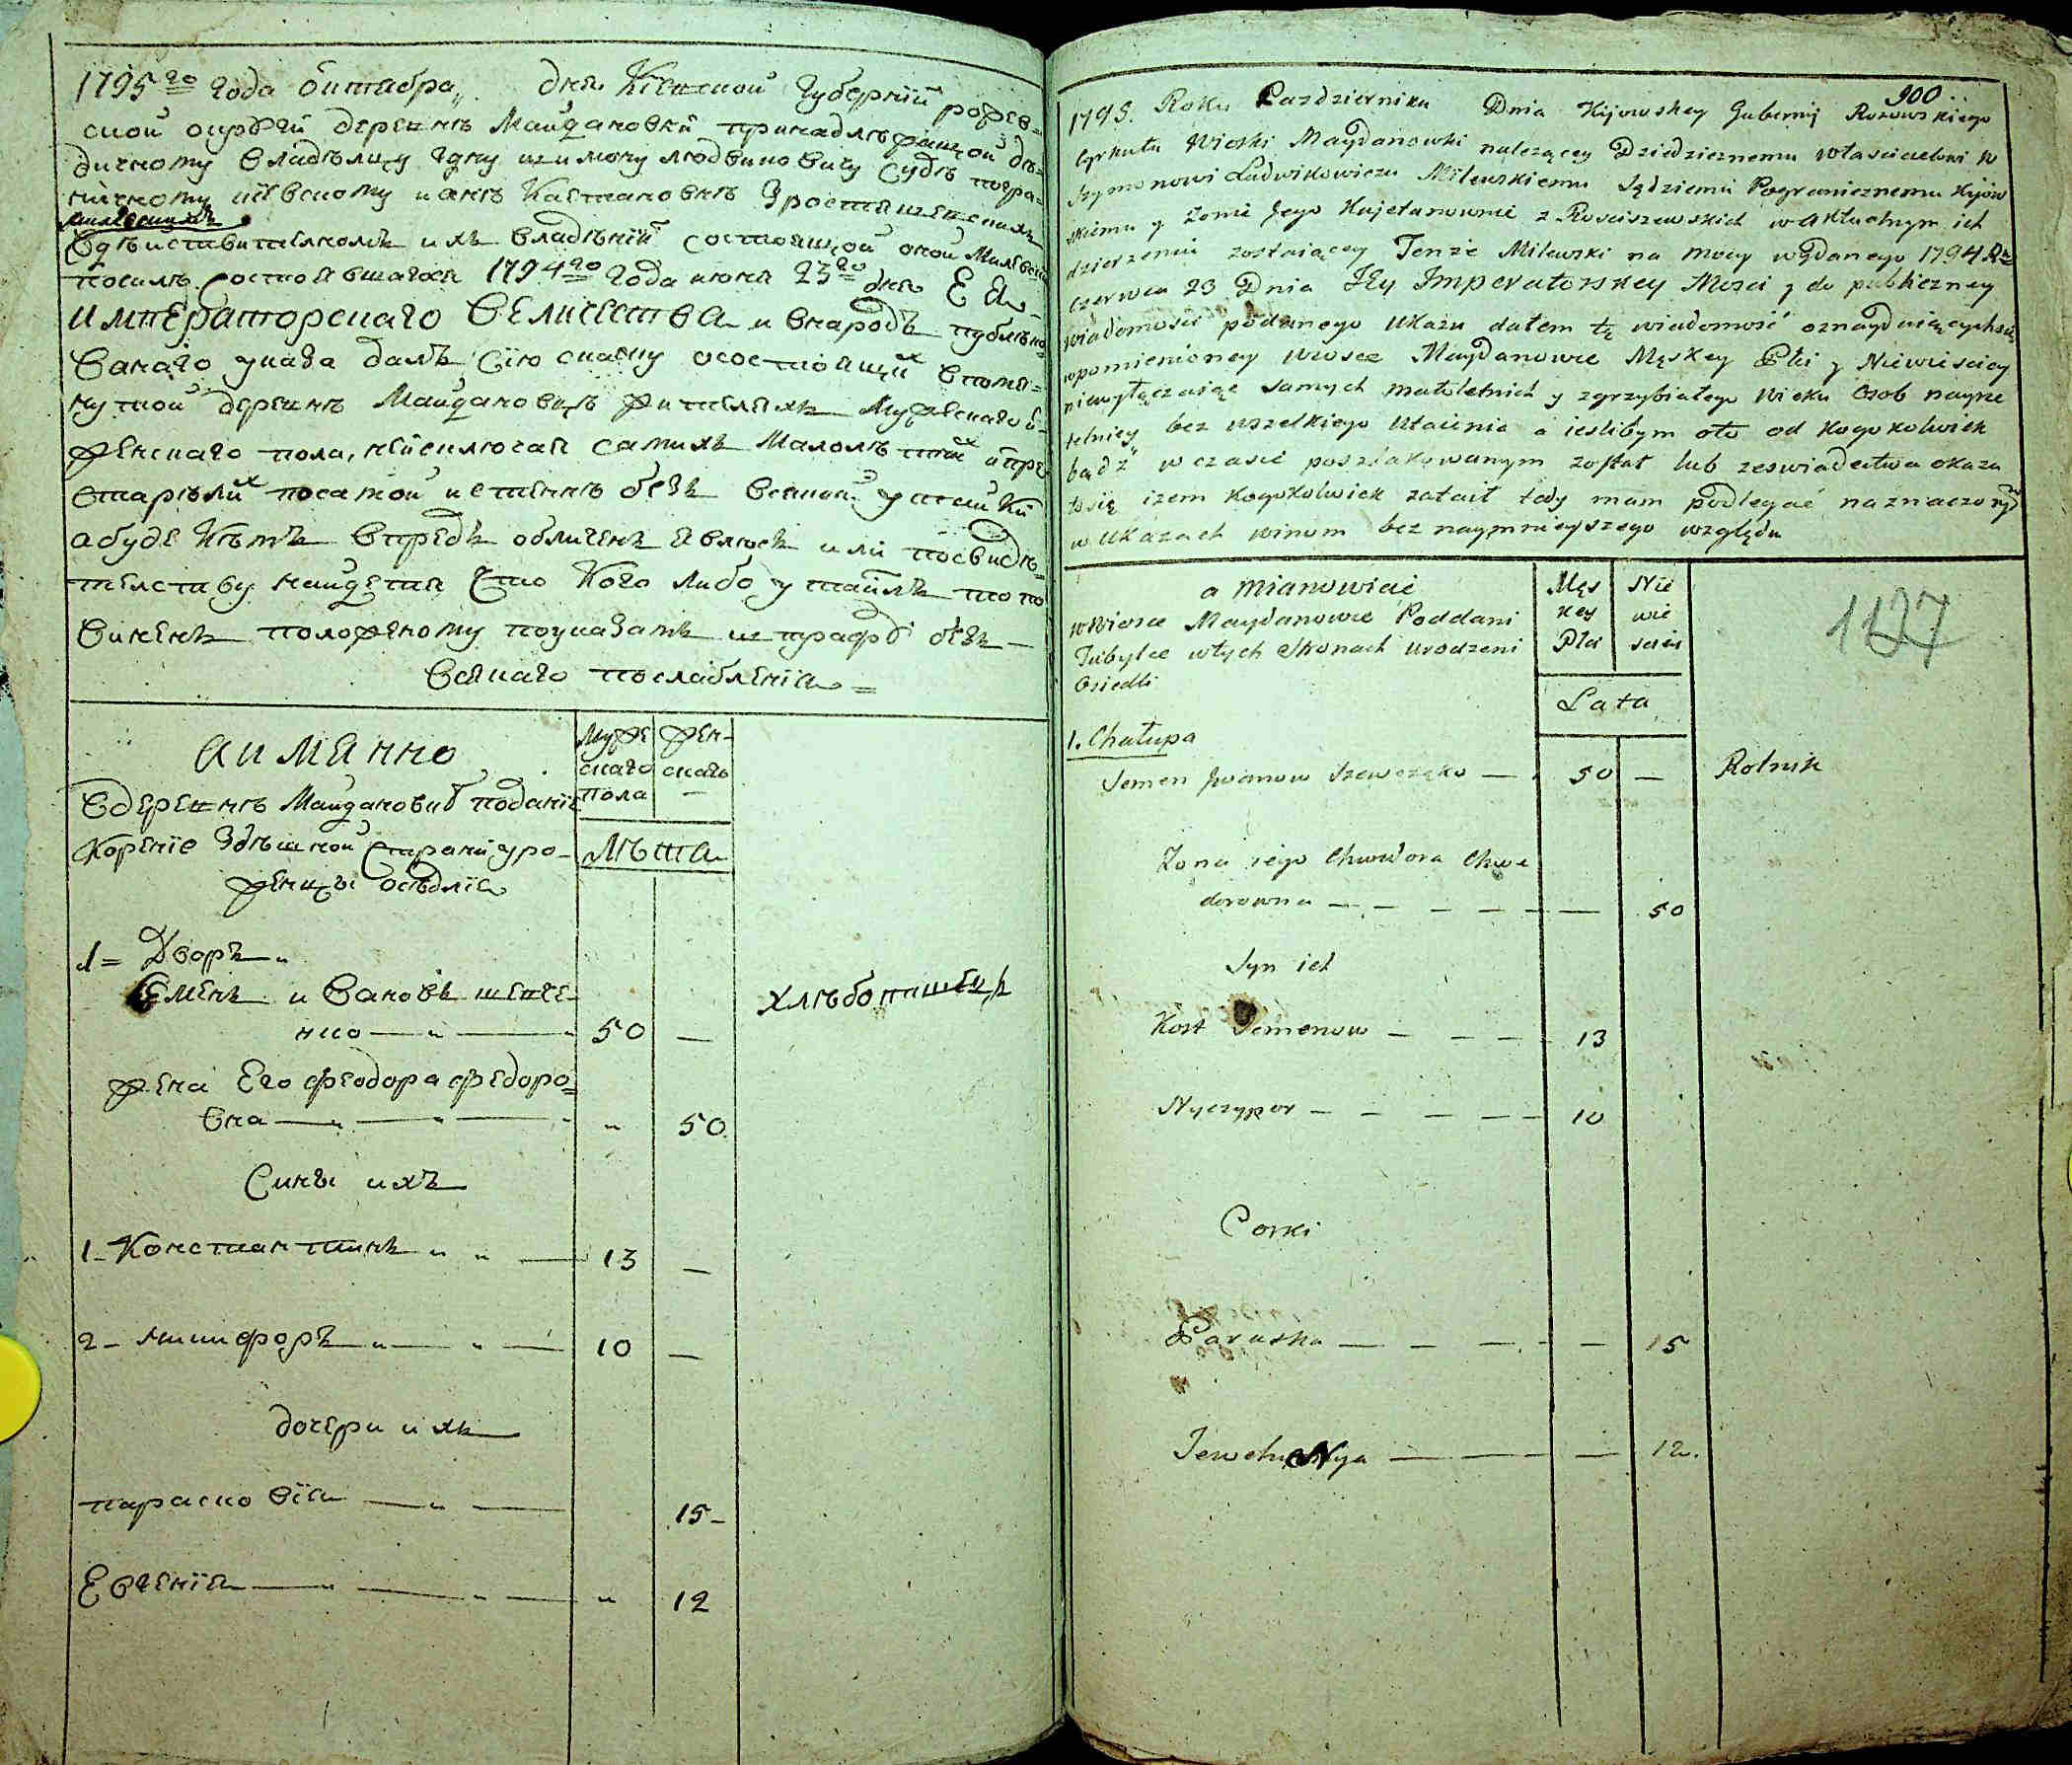 1795го года октября дня Кіевской Губерніи рожев-
ской округи деревнѣ Майдановки принадлѣжащой дѣ-
дичному владѣлцу гдну шимону людвиковичу Судѣ погра-
ничному кіевскому и женѣ Каетановнѣ Зростишевскихъ
милевскимъ
Вдѣиствителномъ ихъ владѣніи состоящой оной Милевски
посилѣ состоявшагося 1794го года июня 23го дня ЕЯ
ИМПЕРАТОРСКАГО ВЕЛИЧЕСТВА и внародъ публѣко-
ванаго указа далъ Сію скаску осостоящих впомя-
нутой деревнѣ Майдановцѣ жителяхъ Мужескаго и
женскаго пола, неисключая самихъ Малолѣтних и пре
старѣлих посамой истиннѣ безъ всякой утайки
абуде кѣмъ впредъ обличенъ явлюсь или посвидѣ-
телству найдется Что Кого либо утаилъ то по
виненъ положеному поуказамъ штрафб безъ
всякаго послабленія =
АИМЯННО
Муже женъ-
скаго скаго
пола —
Вдеревнѣ Майдановкѣ поданіе
Кореніе Здѣшной Страни уро-
женцы осѣдлія
Лѣта
1 = Дворъ
Семенъ ивановъ шевче-
нко 50 —
хлѣбопашецъ
жена Его феодора федоро-
вна " 50
Сины ихъ
1 - Константинъ " " — 13 —
2 - никифоръ " — 10 —
дочери ихъ
парасковія — 15 -
Евгенія " 12
900
1795. Roku Pazdziernika Dnia Kijowskey Gubernij Rozowskiego
Cyrkułu Wioski Maydanowki nalezącey Dziedzicznemu włascicielowi W
Szymonowi Ludwikowiczu Milewskiemu Sędziemu Pogranicznemu Kijow
skiemu y Zonie Jego Kajetanownie z Rosciszewskich w aktualnym ich
dzierzeniu zostaiącey Tenze Milewski na mocy wydanego 1794 R
Czerwca 23 Dnia Jey Imperatorskey Mosci y do publiczney
wiadomosci podanego Ukazu dałem tę wiadomość oznayduiącychsię
wpomienioney wiosce Maydanowce Męskey Płci y Niewiesciey
niewyłączaiąc samych małoletnich y zgrzybiałego Wieku Osob nayrze
telniey bez wszelkiego Utaienia a iesliбym oto od kogokolwiek
bądź w czasie poszlakowanym został lub zeswiadectwa okaza
łosię izem kogokolwiek zataił tedy mam podlegać naznaczonym
w Ukazach winom bez naymnieyszego względu
a mianowicie
wWiosce Maydanowce Poddani
Tubylce wtych stronach urodzeni
Osiedli
Męs Nie
key wie
Płci scia
Lata
1137
1. Chałupa
Semen Jwanow Szewczęko — 50 — Rolnik
Zona iego Chwedora Chwe
dorowna — — — — — — 50
Syn ich
Kost Semenow — — — — 13
Nyczypor — — — — — 10
Corki
Paruska — — — — — 15
Jewchenya — — — 12.